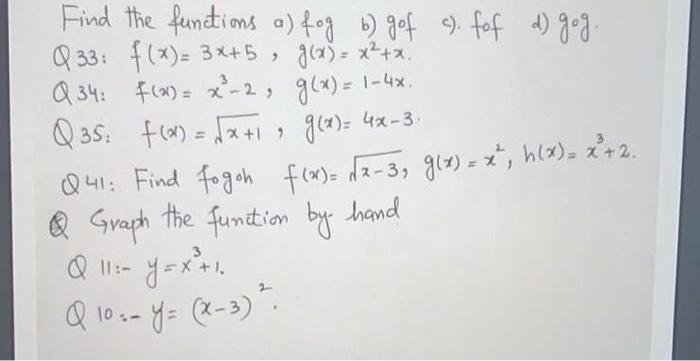 Find the functions a) fog b) gof c). fof d) gog.
Q 33: f(x) = 3x+5 , g(x) = x²+x.
Q 34: f(x) = x³-2 , g(x) = 1-4x.
Q 35: f(x) = √x+1 , g(x) = 4x-3.
Q 41: Find fogoh f(x) = √x-3, g(x) = x², h(x) = x³+2.
Q Graph the function by hand
Q 11:- y = x³+1.
Q 10:- y = (x-3)².